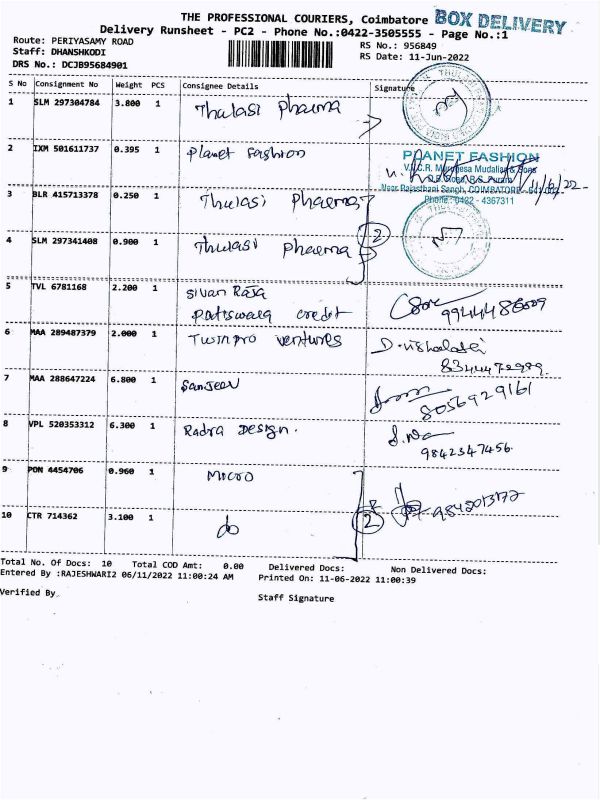 THE PROFESSIONAL COURIERS, Coimbatore BOX DELIVERY
Delivery Runsheet - PC2 - Phone No.:0422-3505555 - Page No.:1
Route: PERIYASAMY ROAD
RS No.: 956849
Staff: DHANSHKODI
RS Date: 11-Jun-2022
DRS No.: DCJB95684901
S No Consignment No Weight PCS Consignee Details Signature
1 SLM 297304784 3.800 1 Thulasi pharma
2 IXM 501611737 0.395 1 planet Fashion
PLANET FASHION
V.C.R. Murugesa Mudaliar & Sons
Near Rajasthani Sangh, COIMBATORE
Phone: 0422 - 4367311
3 BLR 415713378 0.250 1 Thulasi pharma
4 SLM 297341408 0.900 1 Thulasi pharma
2
5 TVL 6781168 2.200 1 sivan Raja
credit
6 MAA 289487379 2.000 1 Twinpro ventures
7 MAA 288647224 6.800 1 Sanjeev
8056929161
8 VPL 520353312 6.300 1 Radra Design.
9842347456
9 PON 4454706 0.960 1 Micro
9842013172
10 CTR 714362 3.100 1 do
2
Total No. Of Docs: 10 Total COD Amt: 0.00 Delivered Docs: Non Delivered Docs:
Entered By :RAJESHWARI2 06/11/2022 11:00:24 AM Printed On: 11-06-2022 11:00:39
Verified By
Staff Signature